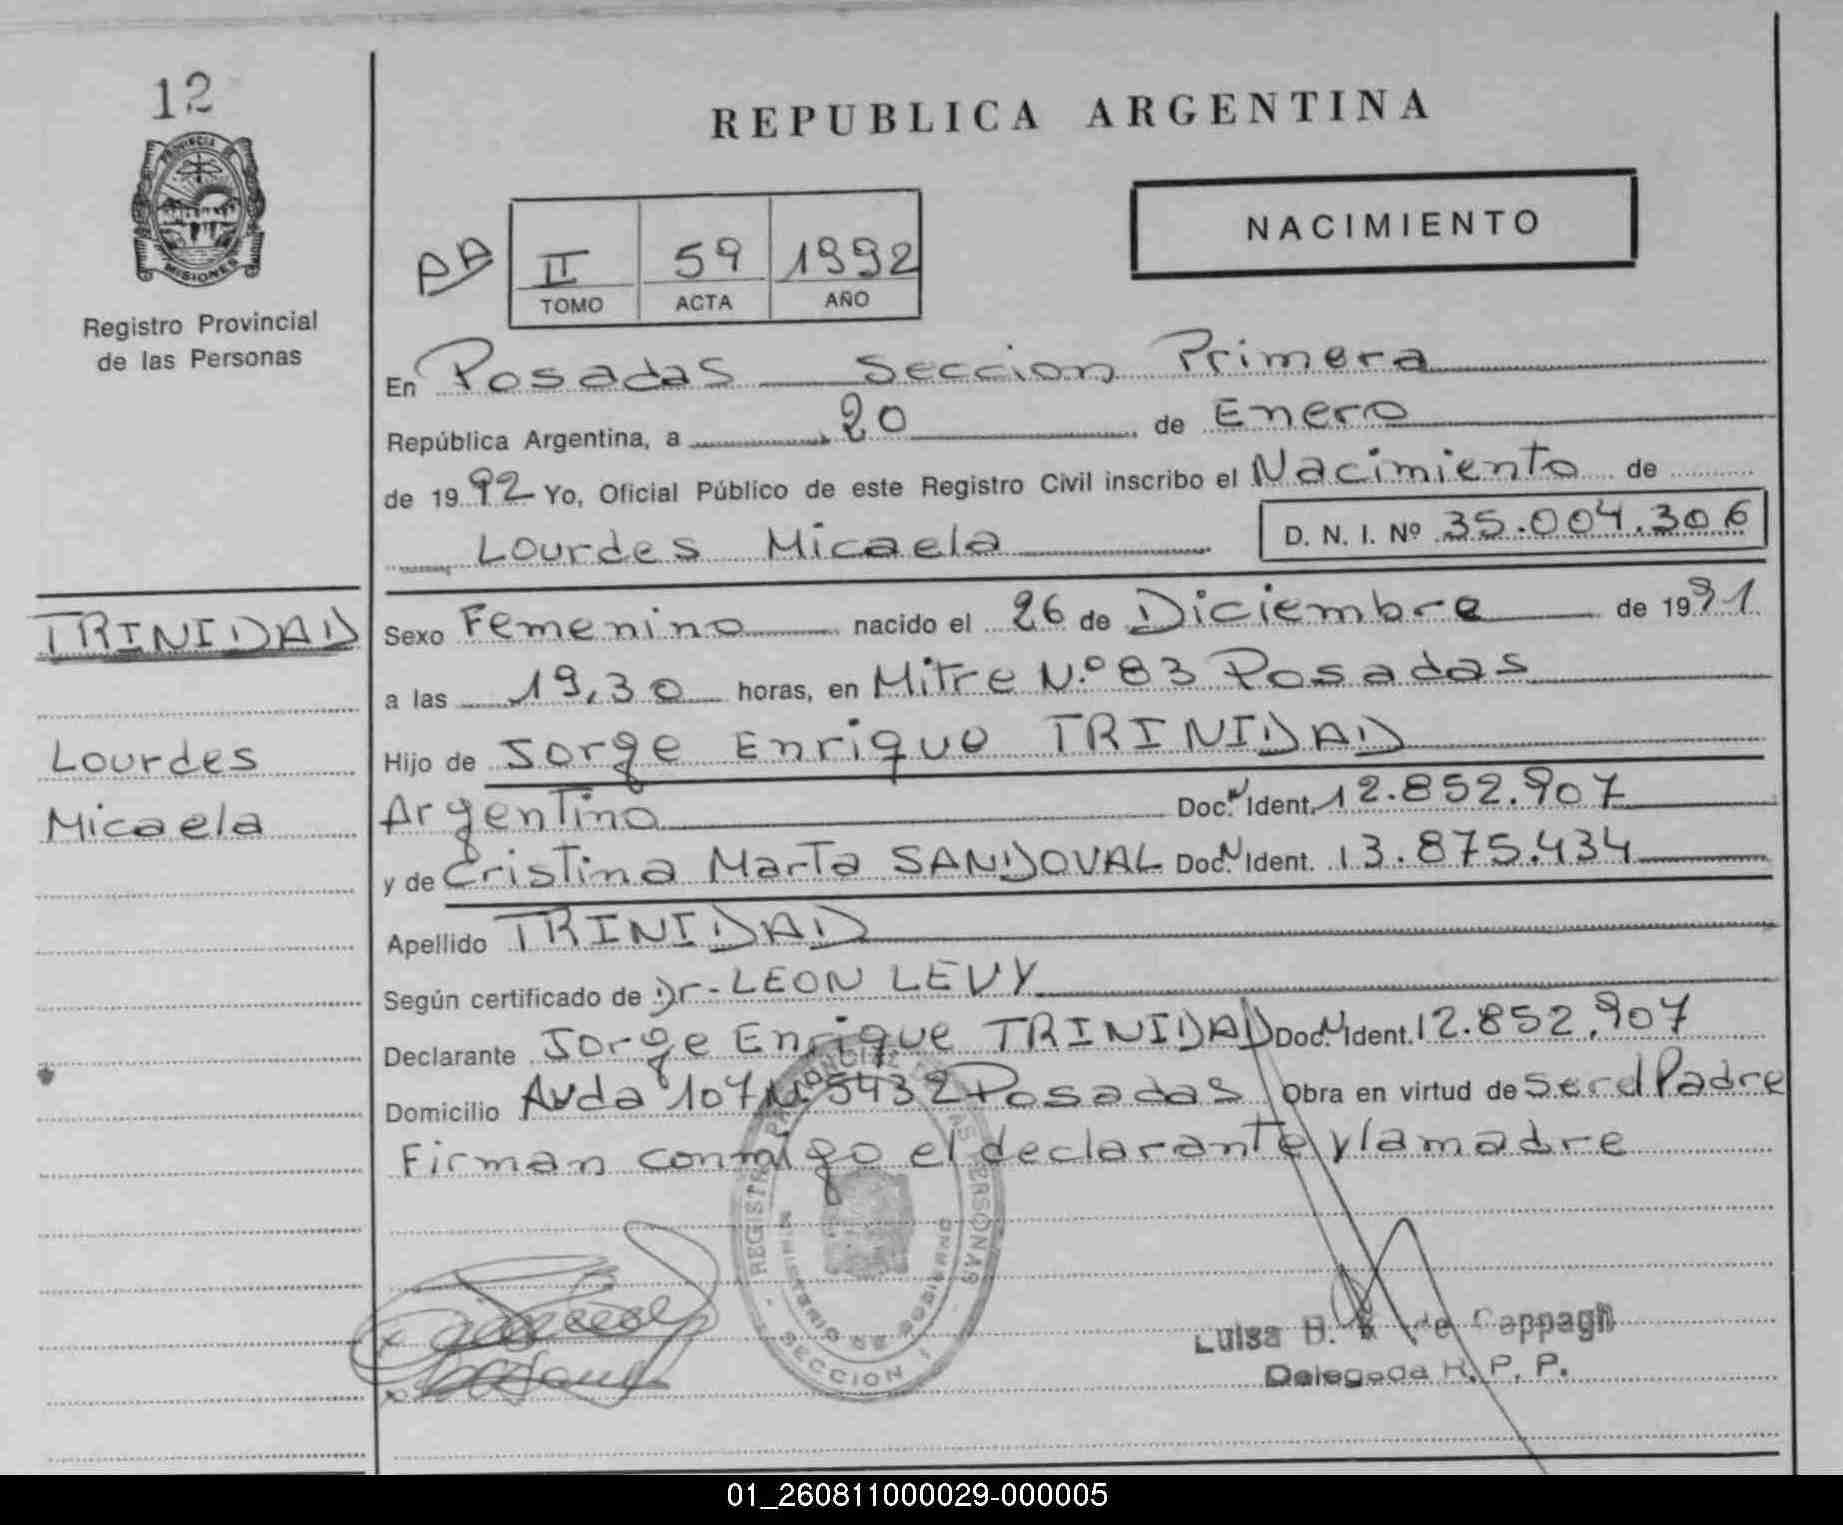 12
PROVINCIA DE
MISIONES
Registro Provincial
de las Personas
TRINIDAD
Lourdes
Micaela
REPUBLICA ARGENTINA
NACIMIENTO
AA II 59 1992
TOMO ACTA AÑO
En Posadas Seccion Primera
República Argentina, a 20 de Enero
de 1992 Yo, Oficial Público de este Registro Civil inscribo el Nacimiento de
Lourdes Micaela D. N. I. Nº 35.004.306
Sexo Femenino nacido el 26 de Diciembre de 1991
a las 19,30 horas, en Mitre N.º 83 Posadas
Hijo de Jorge Enrique TRINIDAD
Argentino Doc. N Ident. 12.852.907
y de Cristina Marta SANDOVAL Doc. N Ident. 13.875.434
Apellido TRINIDAD
Según certificado de Dr. LEON LEVY
Declarante Jorge Enrique TRINIDAD Doc. N Ident. 12.852.907
Domicilio Avda 107 N. 5432 Posadas Obra en virtud de Ser el Padre
Firman conmigo el declarante y la madre
REGISTRO PROVINCIAL DE LAS PERSONAS
MINISTERIO DE GOBIERNO
SECCION I
Luisa B. de Cappagh
Delegada R. P. P.
01_260811000029-000005